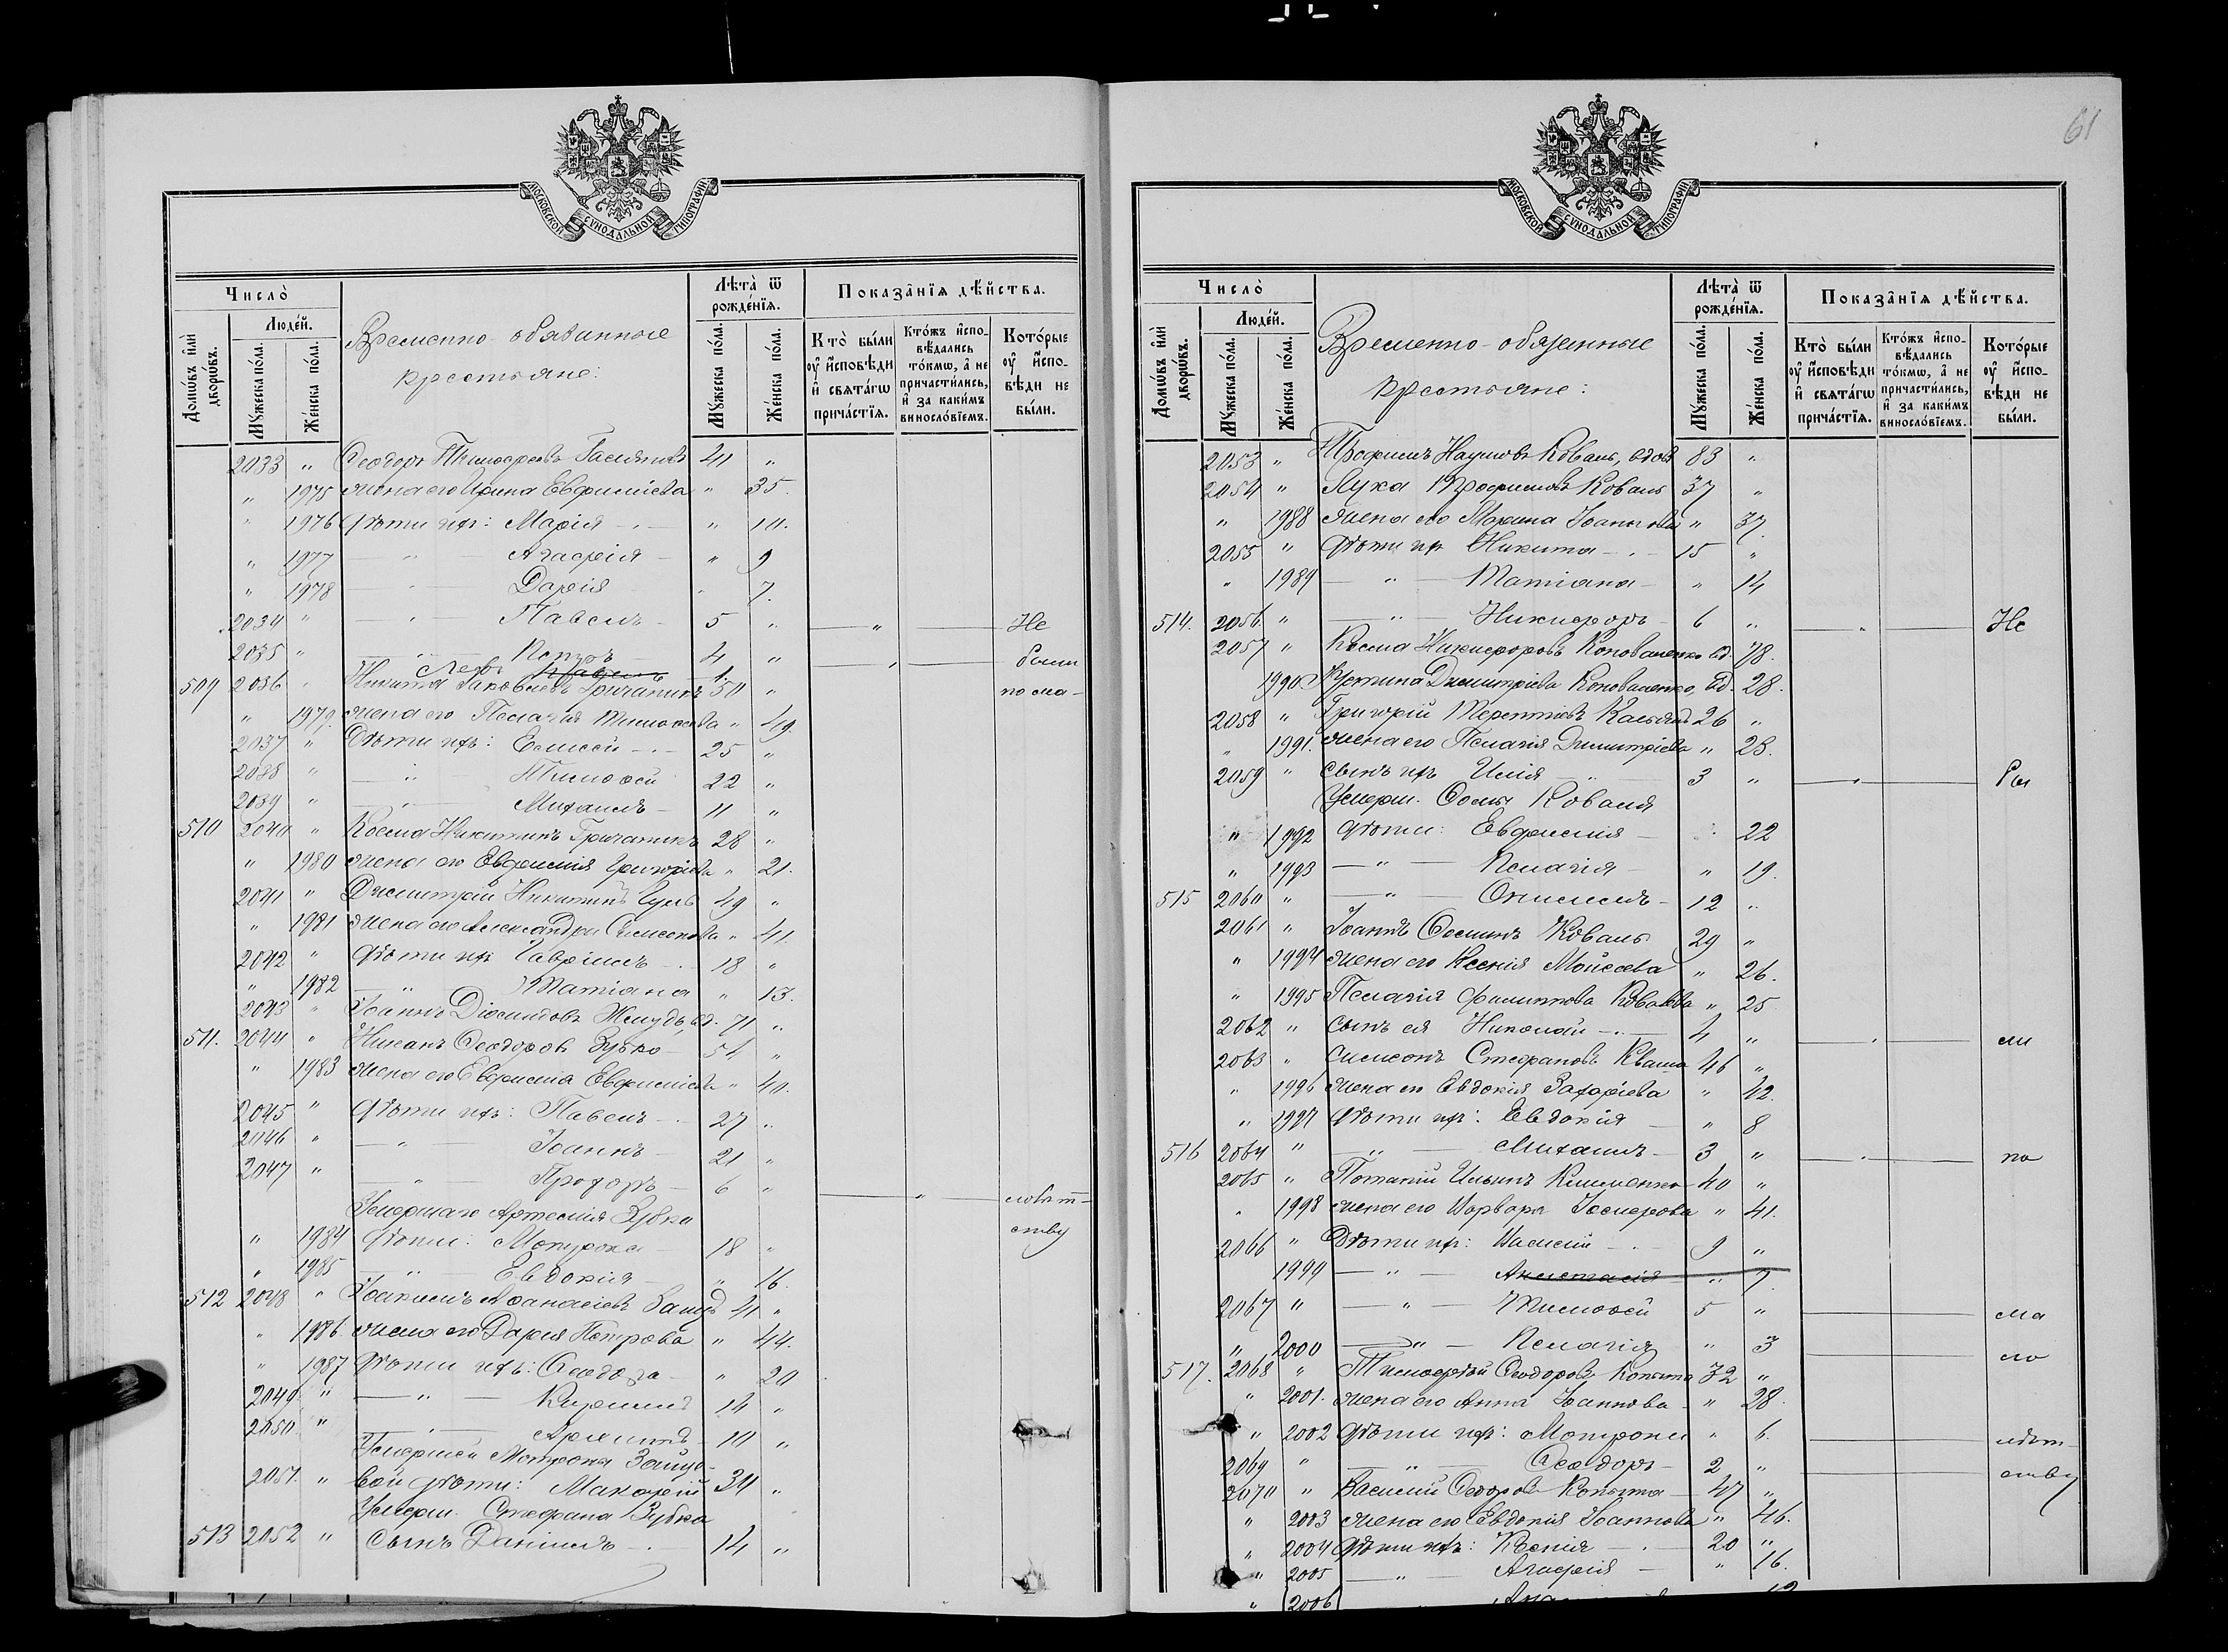 61
МОСКОВСКОЙ СѴНОДАЛЬНОЙ ТИПОГРАФІИ
Число̀
Домѡ́въ и҆лѝ дворѡ́въ.
Люде́й.
Мꙋ́жеска по́ла.
Же́нска по́ла.
Временно-обязанные
крестьяне:
Лѣта̀ ѿ рожде́нїѧ.
Мꙋ́жеска по́ла.
Же́нска по́ла.
Показа̑нїѧ дѣ́йства.
Кто̀ бы́ли ᲂу҆ и҆́сповѣди и҆ свѧта́гѡ прича́стїѧ.
Кто́жъ и҆спо-вѣ́дались то́кмѡ, а҆ не причасти́лись, и҆ за каки́мъ виносло́вїемъ.
Кото́рые ᲂу҆ и҆́спо-вѣди не бы́ли.
2033 " Ѳеодоръ Тимоѳеевъ 41 "
" 1975 жена его Ирина Евѳиміева " 35.
" 1976 дѣти ихъ: Марія " 11.
" 1977 — " — Агафія " 9
" 1978 — " — Дарія " 7.
2034 " — " — Павелъ 5 " — " — Не
2035 " — " — Петръ 4 " — " — были
509 2036 " Никита Іаковлевъ Гричаникъ 50 " по ма-
" 1979. жена его Пелагія Тимоѳеева " 49
2037 " Дѣти ихъ: Елисей 25 "
2038 " — " — Тимоѳей 22 "
2039 " — " — Михаилъ 11 "
510 2040 " Косма Никитинъ Гричаникъ 28 "
" 1980 жена его Евфимія Григоріева " 21.
2041 " Димитрій Никитинъ 49 "
" 1981 жена его Александра Симеонова " 41.
2042 " дѣти ихъ Гавріилъ 18 "
" 1982 — " — Татіана " 13.
2043 " Іоаннъ Діомидовъ Жмудь, вд. 71 "
511. 2044 " Ѳеодоровъ Зубко 54 "
" 1983 жена его Евфимія Евфиміева " 40.
2045 " дѣти ихъ: Павелъ 27 "
2046 " — " — Іоаннъ 21 "
2047 " — " — Прохоръ 6 " — " — лолѣт-
Умершаго Артемія Зубка ству
" 1984 дѣти: Мотрона 18 "
" 1985 — " — Евдокія " 16.
512 2048 " Іоакимъ Аѳанасіевъ 41 "
" 1986. жена его Дарія Петрова " 44.
" 1987 дѣти ихъ: Ѳеодора " 20
2049. " — " — Кириллъ 14 "
2050. " — " — 10 "
Умершей Мотроны
2051. " вой дѣти: Макарій 34 "
Умерш. Стефана Зубка
513 2052 " сынъ Даніилъ 14 "
Число̀
Домѡ́въ и҆лѝ дворѡ́въ.
Люде́й.
Мꙋ́жеска по́ла.
Же́нска по́ла.
Временно-обязанные
крестьяне:
Лѣта̀ ѿ рожде́нїѧ.
Мꙋ́жеска по́ла.
Же́нска по́ла.
Показа̑нїѧ дѣ́йства.
Кто̀ бы́ли ᲂу҆ и҆́сповѣди и҆ свѧта́гѡ прича́стїѧ.
Кто́жъ и҆спо-вѣ́дались то́кмѡ, а҆ не причасти́лись, и҆ за каки́мъ виносло́вїемъ.
Кото́рые ᲂу҆ и҆́спо-вѣди не бы́ли.
2053 " Трофимъ Наумовъ Коваль, вдов 83 "
2054 " Лука Трофимовъ Коваль 37 "
" 1988 жена его Марина Іоаннова " 37.
2055 " дѣти ихъ Никита 15 "
" 1989 — " — Татіана " 14
514. 2056 " — " — Никифоръ 6 " — " — Не
2057 " Косма Никифоровъ Коноваленко вд. 78.
1990 Димитріева Коноваленко, вд. 28.
2058 " Григорій Терентіевъ 26 "
" 1991. жена его Пелагія Димитріева " 23.
2059 " сынъ ихъ Илія 3 " — " — бы
Умерш. Ѳомы Коваля
" 1992 дѣти: Евфимія " 22
" 1993 — " — Пелагія " 19.
515 2060 " — " — Онисимъ 12 "
2061 " Іоаннъ Ѳоминъ Коваль 29 "
" 1994 жена его Ксенія Моисеева " 26.
" 1995 Пелагія Филиппова Ковалева " 25
2062 " сынъ ея Николай 4 " — " — ли
2063 " Симеонъ Стефановъ Кваша 46 "
" 1996 жена его Евдокія Захаріева " 42.
" 1997 дѣти ихъ: Евдокія " 8
516 2064 " — " — Михаилъ 3 " — " — по
2065 " Потапій Ильинъ Клименко 40 "
" 1998 жена его Варвара Іосифова " 41.
2066 " Дѣти ихъ: Василій 9 "
1999 — " — Анастасія " 7
2067 " — " — Тимоѳей 5 " — ма
" 2000 — " — Пелагія " 3 — ло
517. 2068 " Тимоѳей Ѳеодоровъ Копыта 32 "
" 2001. жена его Анна Іоаннова " 28.
" 2002 дѣти ихъ: Мотрона " 6. — лѣт-
2069 " — " — Ѳеодоръ 2 " — ству
2070 " Василій Ѳеодоровъ Копыта 47 "
" 2003 жена его Евдокія Іоаннова " 46.
" 2004 дѣти ихъ: Ксенія 20 "
" 2005 — " — Агафія " 16.
" 2006